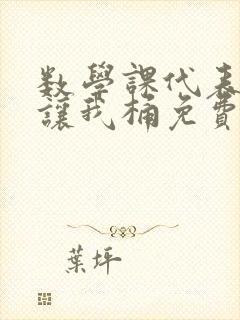 數學課代表
讓我桶免費
葉坪